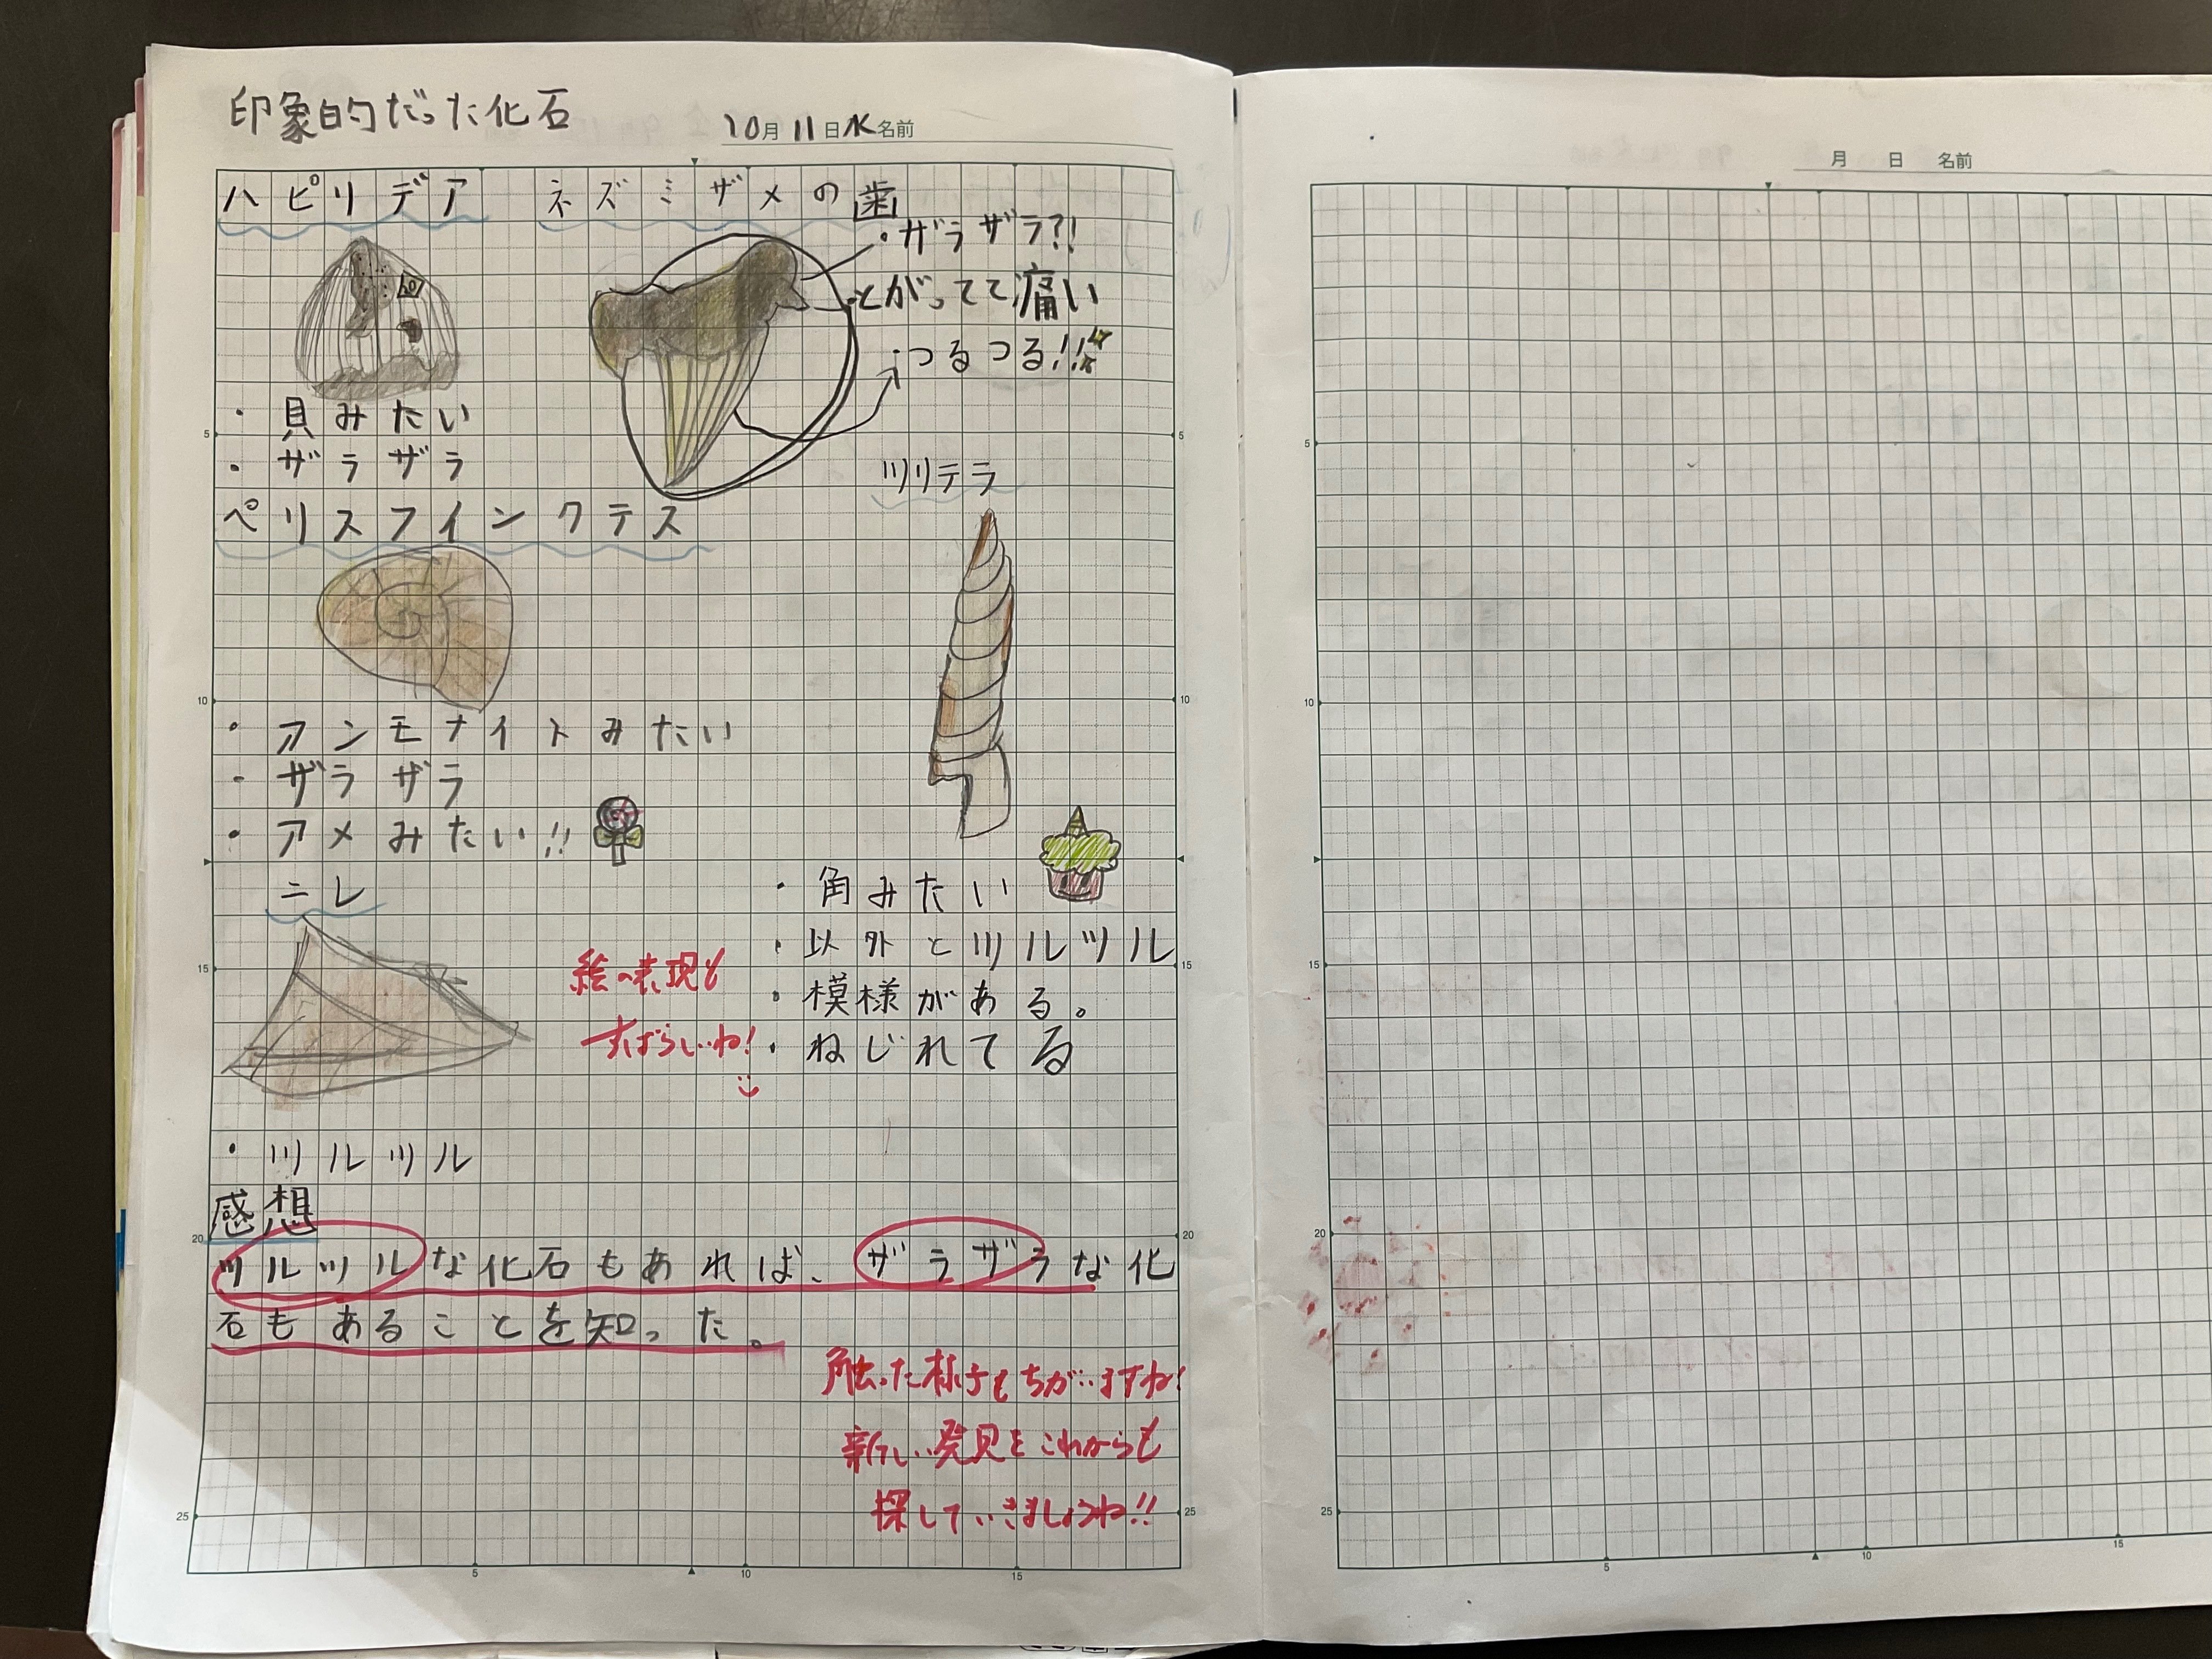 印象的だった化石
10月11日水名前
ハピリデア
ネズミザメの歯
・ザラザラ?!
とがってて痛い
・つるつる!!
・貝みたい
・ザラザラ
ツリテラ
ペリスフインクテス
・アンモナイトみたい
・ザラザラ
・アメみたい!!
ニレ
・角みたい
・以外とツルツル
・模様がある。
・ねじれてる
絵の表現も
すばらしいね!
・ツルツル
感想
ツルツルな化石もあれば、ザラザラな化
石もあることを知った。
触った様子もちがいますね!
新しい発見をこれからも
探していきましょうね!!
5
10
15
20
25
5
10
15
20
25
5
10
15
月 日 名前
5
10
15
20
25
5
10
15